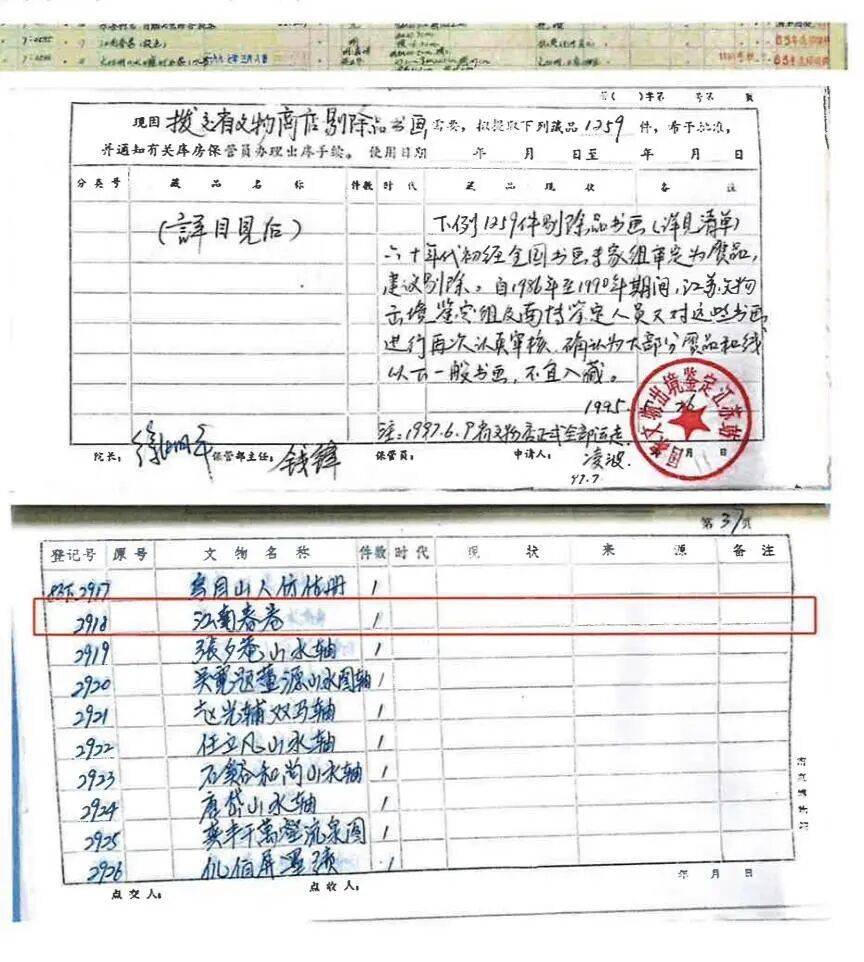 7:0595 江南春卷(设色)
省( )字第 号第 页
现因拨交省文物商店剔除品书画需要,拟提取下列藏品1259件,希予批准,
并通知有关库房保管员办理出库手续。使用日期 年 月 日至 年 月 日
分类号 藏品名称 件数 时代 藏品现状 备注
(詳目見后)
下列1259件剔除品书画(详见清单)
六十年代初经全国书画专家组审定为赝品,
建议剔除。自1986年至1990年期间,江苏文物
出境鉴定组及南博鉴定人员又对这些书画
进行再次认真审核,确认为大部分赝品和线
以下一般书画,不宜入藏。
1995.
注:1997.6.9省文物店正式全部运走
院长: 徐湖平 保管部主任: 钱锋 保管员: 申请人: 凌波 月 日
97.7
国家文物出境鉴定江苏站
第37页
登记号 原号 文物名称 件数 时代 现状 来源 备注
2917 山人仿佳册 1
2918 江南春卷 1
2919 張夕菴山水轴 1
2920 吴寛题董源山水图轴 1
2921 赵光辅双马轴 1
2922 任立凡山水轴 1
2923 石谿和尚山水轴 1
2924 唐岱山水轴 1
2925 龚半千萬壑流泉图 1
2926 1
年 月 日
点交人: 点收人: